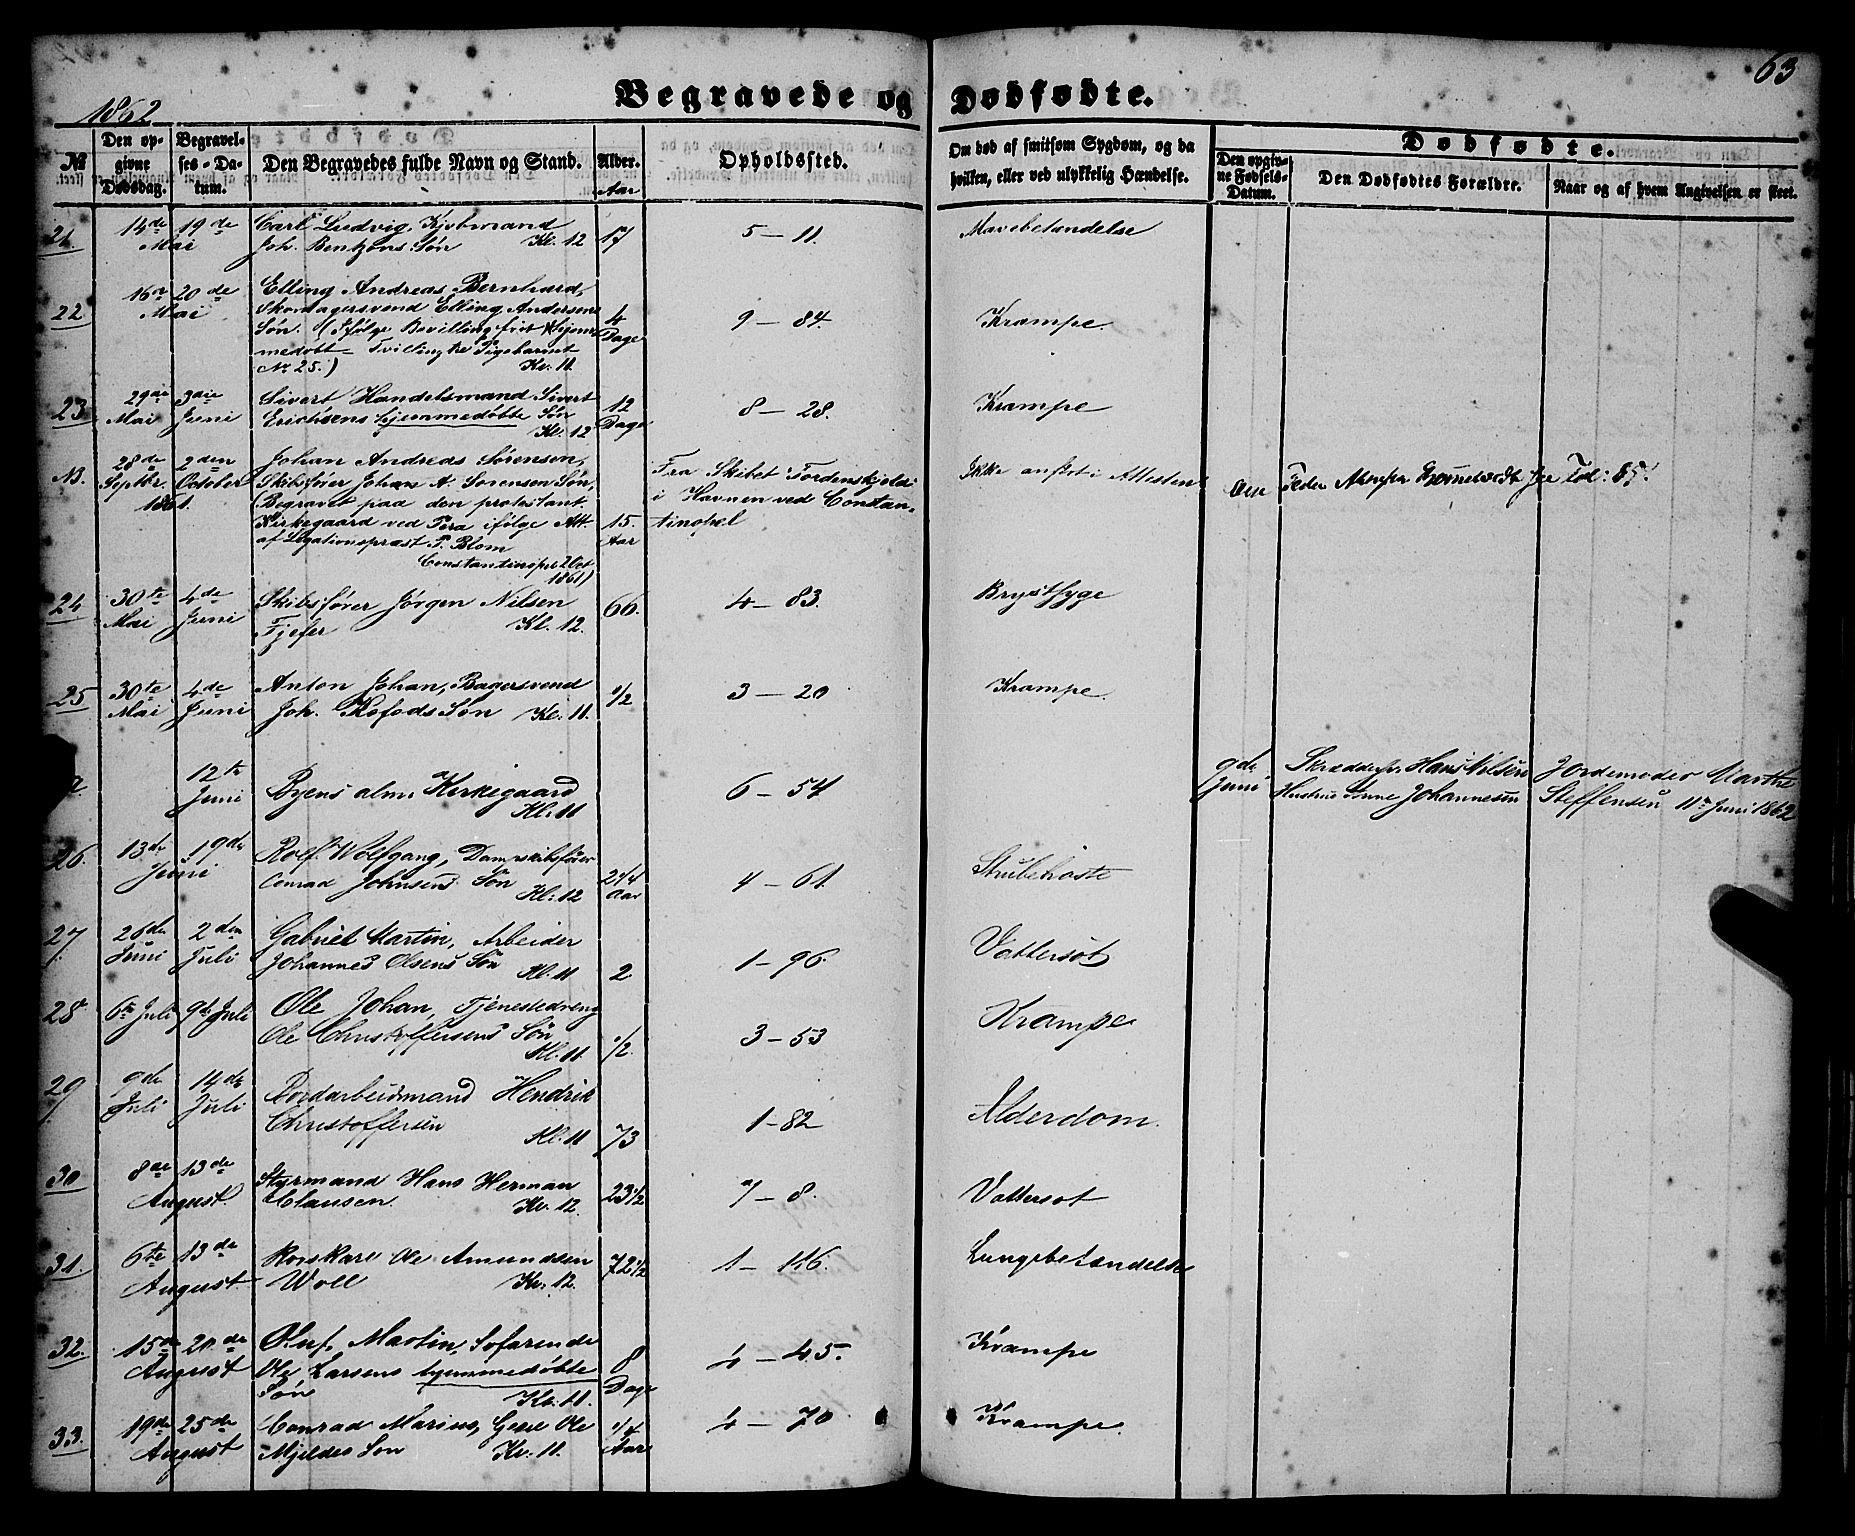 63
1862
Begravede og Dødfødte.
№
Den opgivne Dødsdag.
Begravelses-Datum.
Den Begravedes fulde Navn og Stand.
Alder.
Aar
Opholdssted.
Om død af smitsom Sygdom, og da hvilken, eller ved ulykkelig Hændelse.
Dødfødte.
Den opgivne Fødsels-Datum.
Den Dødfødtes Forældre.
Naar og af hvem Angivelsen er skeet.
21. 14de 19de Carl Ludvig, Kjøbmand 5 – 11. Mavebetændelse
Mai Joh. Bentzons Søn Kl. 12 17
16de 20de Elling Andreas Bernhard,
22. Mai Skomagersvend Elling Andersens 4 9 – 84. Krampe
Søn. (Ifølge Bevilling frit Hjem Dage
medøbt – Tvilling
Nr 25.) Kl. 11.
29de 3die Sivert Handelsmand Sivert 12
23. Mai Juni Erichsens hjemmedøbte Søn Dage 8 – 28. Krampe
Kl. 12
28de 2den Johan Andreas Sørensen, Fra Skibet Tordenskjold Ikke anført i Attesten
NB. Septbr. October Skibsfører Johan A. Sørensen Søn, i Havnen ved Constan-
1861. (Begravet paa den protestant. tinopel
Kirkegaard ved Pera ifølge Att. 15.
af Legationspræst P. Blom Aar
Constantinopel 2 Oct
1861)
24 30te 4de Skibsfører Jørgen Nilsen 66. 4 – 83. Brystsyge
Mai Juni Kl. 12.
25 30te 4de Anton Johan, Bagersvend 1/2 3 – 20 Krampe
Mai Juni Joh. Kofods Søn Kl. 11
12te Byens alm. Kirkegaard 6 – 54 9de Skrædder Hans Nilsen Jordemoder Marthe
Juni Kl. 11 Juni Hustrue Anne Johannesen Steffensen 11te Juni 1862
26. 13de 19de Rolf Wolfgang, Dampskibsfører 2 1/4 4 – 61. Strubehoste
Juni Conrad Johnsens Søn Kl. 12 Aar
27 26de 2den Gabriel Martin, Arbeider 1 – 96 Vattersot
Juni Juli Johannes Olsens Søn Kl. 11 2
28 6te Juli 9de Juli Ole Johan, Tjenestedreng 3 – 53 Krampe
Ole Christoffersens Søn Kl. 11. 1/2
29 9de 14de Hendrik
Juli Juli Christoffersen Kl. 11 73 1 – 82 Alderdom.
30 8de 13de Styrmand Hans Herman 23 1/2 7 – 8. Vattersot
August Clausen. Kl. 12.
31. 6te 13de Ole Amundsen 72 1/2 1 – 116. Lungebetændelse
August Woll Kl. 12.
32. 15de 20de Oluf Martin, Søfarende
August Ole Larsens hjemmedøbte 8 4 – 45. Krampe
Søn Kl. 11. Dage
33. 19de 25de Conrad Marius, Ole 1/4 4 – 70 Krampe.
August Mjeldes Søn Kl. 11. Aar